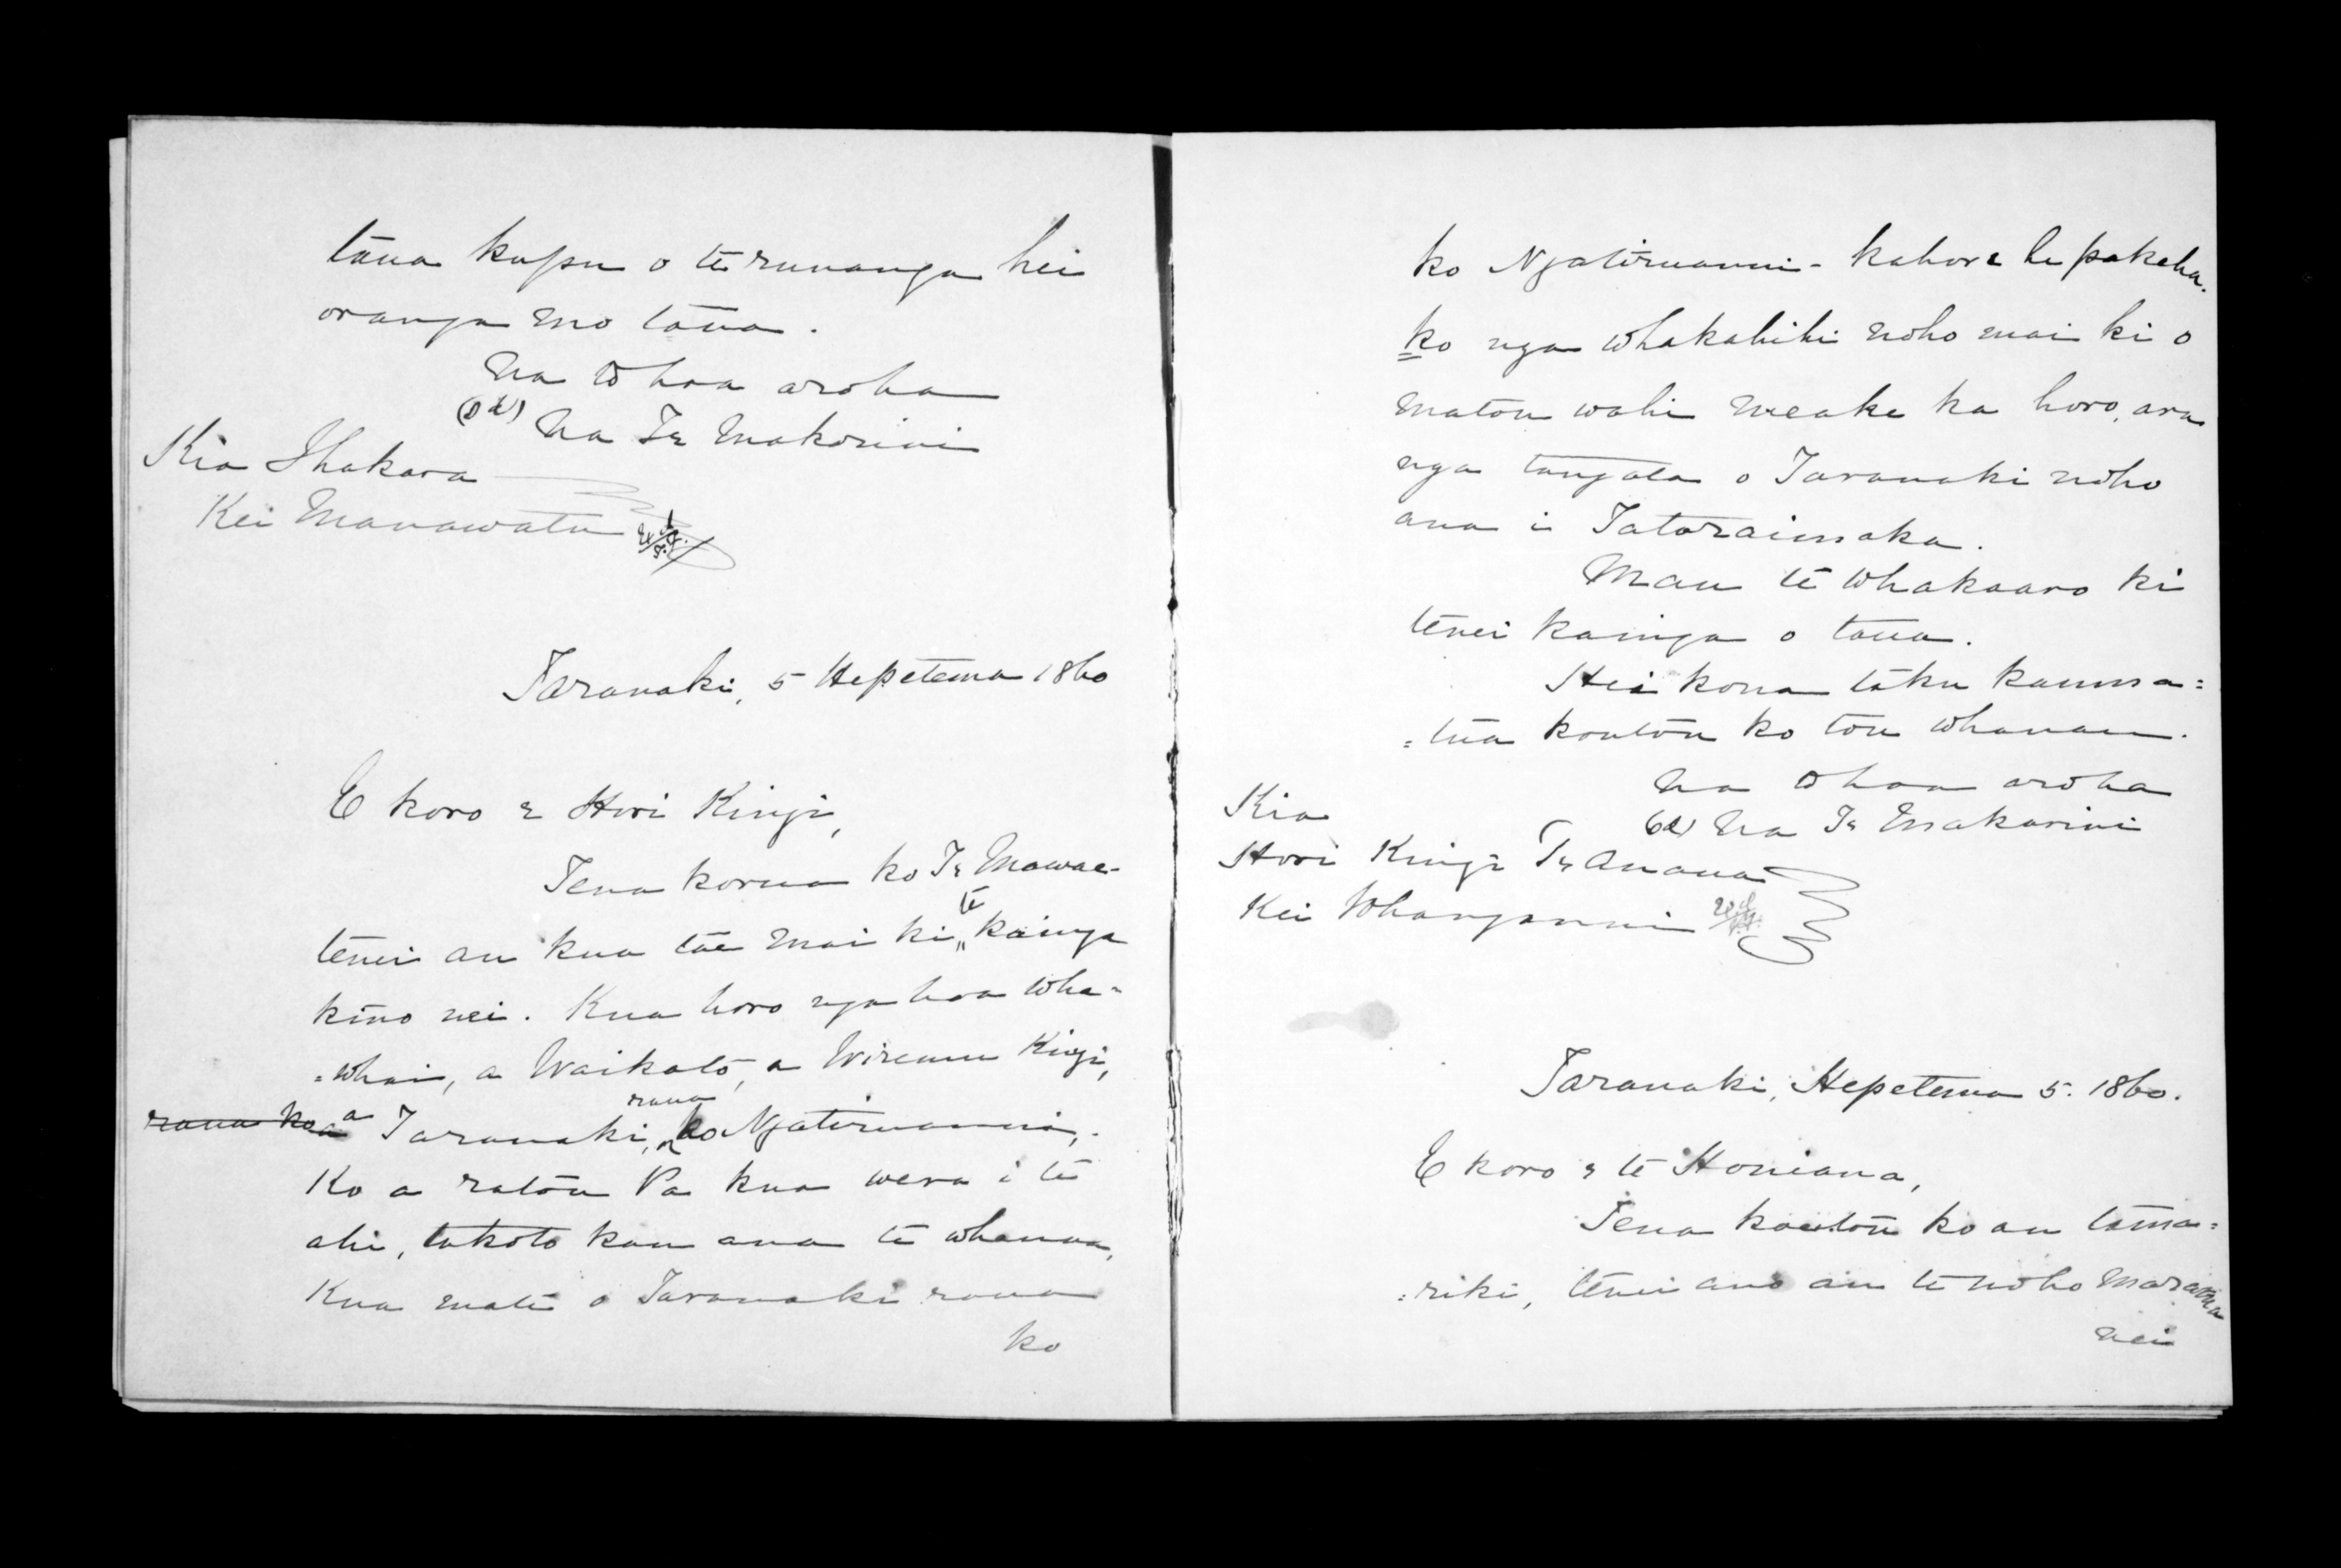 taua kupu o te runanga hei
oranga mo taua.
Na to hoa aroha
(Sd) Na Te Makarini
Kia Ihakara
Kei Manawatu
Taranaki, 5 Hepetema 1860
E koro e Hori Kingi,
Tena korua ko Te Mawae-
tenei au kua tae mai ki te kainga
kino nei. Kua horo nga hoa wha=
=whai, a Waikato, a Wiremu Kingi,
a Taranaki, raua ko Ngatiruanui,
Ko a ratou Pa kua wera i te
ahi, takoto kau ana te whenua,
Kua mate o Taranaki raua
ko
ko Ngatiruanui - kahore he pakeha.
ko nga whakahihi noho mai ki o
matou wahi meake ka horo, ara
nga tangata o Taranaki noho
ana i Tataraimaka.
Mau te whakaaro ki
tenei kainga o taua.
Hei kona taku kauma=
=tua koutou ko tou whanau.
Na to hoa aroha
(Sd) Na Te Makarini
Kia
Hori Kingi Te Anaua
Kei Whanganui
Taranaki, Hepetema 5. 1860.
E koro e te Honiana,
Tena koutou ko au tama=
=riki, tenei ano au te noho marama
nei